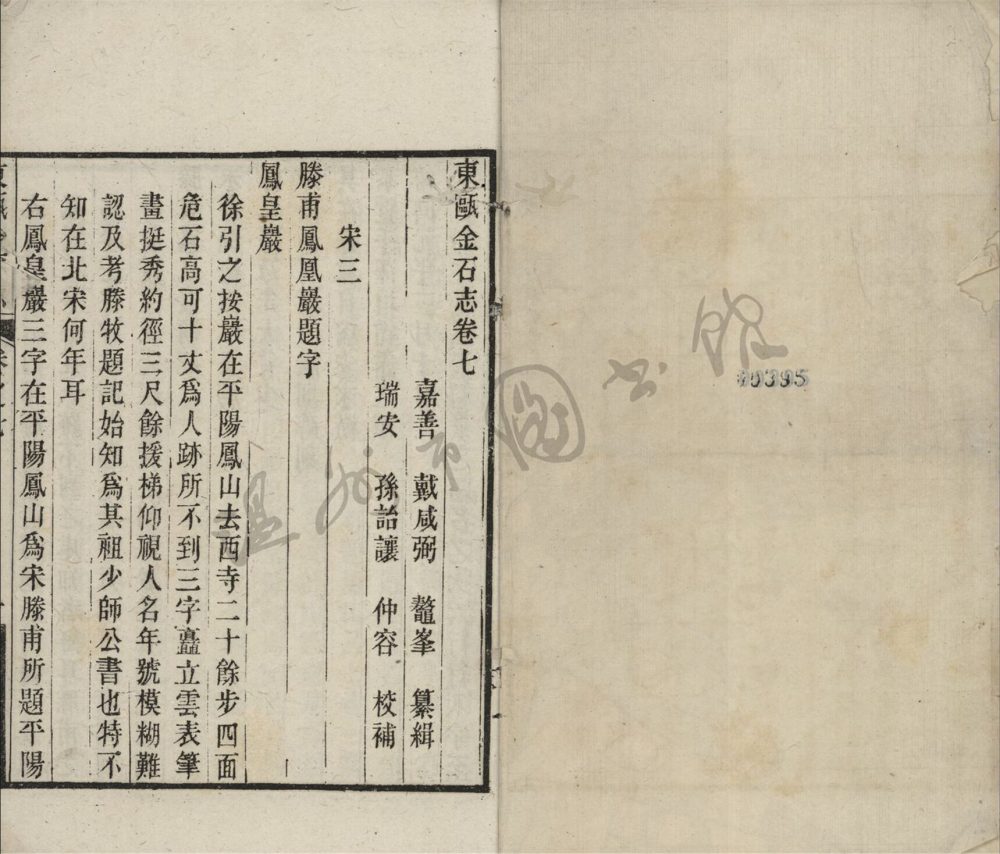 東甌金石志卷七
嘉善 戴咸弼 鼇峯 纂緝
瑞安 孫詒讓 仲容 校補
宋三
滕甫鳳凰巖題字
鳳皇巖
徐引之按巖在平陽鳳山去西寺二十餘步四面
危石高可十丈爲人跡所不到三字矗立雲表筆
畫挺秀約徑三尺餘援梯仰視人名年號模糊難
認及考滕牧題記始知爲其祖少師公書也特不
知在北宋何年耳
右鳳皇巖三字在平陽鳳山爲宋滕甫所題平陽
溫州市圖書館
00395